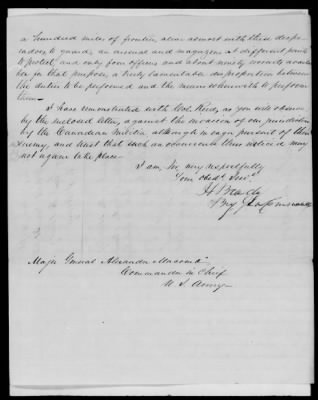 a hundred miles of frontier alive almost with these despe-
radoes, to guard, an arsenal and magazines at different points
to protect, and only four officers and about ninety recruits availa-
ble for that purpose, a truly lamentable disproportion between
the duties to be performed and the means wherewith to perform
them—
I have remonstrated with Col. Airey, as you will observe
by the enclosed letter, against the invasion of our jurisdiction
by the Canadian militia although in eager pursuit of their
enemy, and trust that such an occurrence thus noticed may
not again take place
I am Sir, very respectfully
Your Obdt. Servt.
H Brady
Brig Genl Commanding
Major General Alexander Macomb
Commander in Chief
U. S. Army